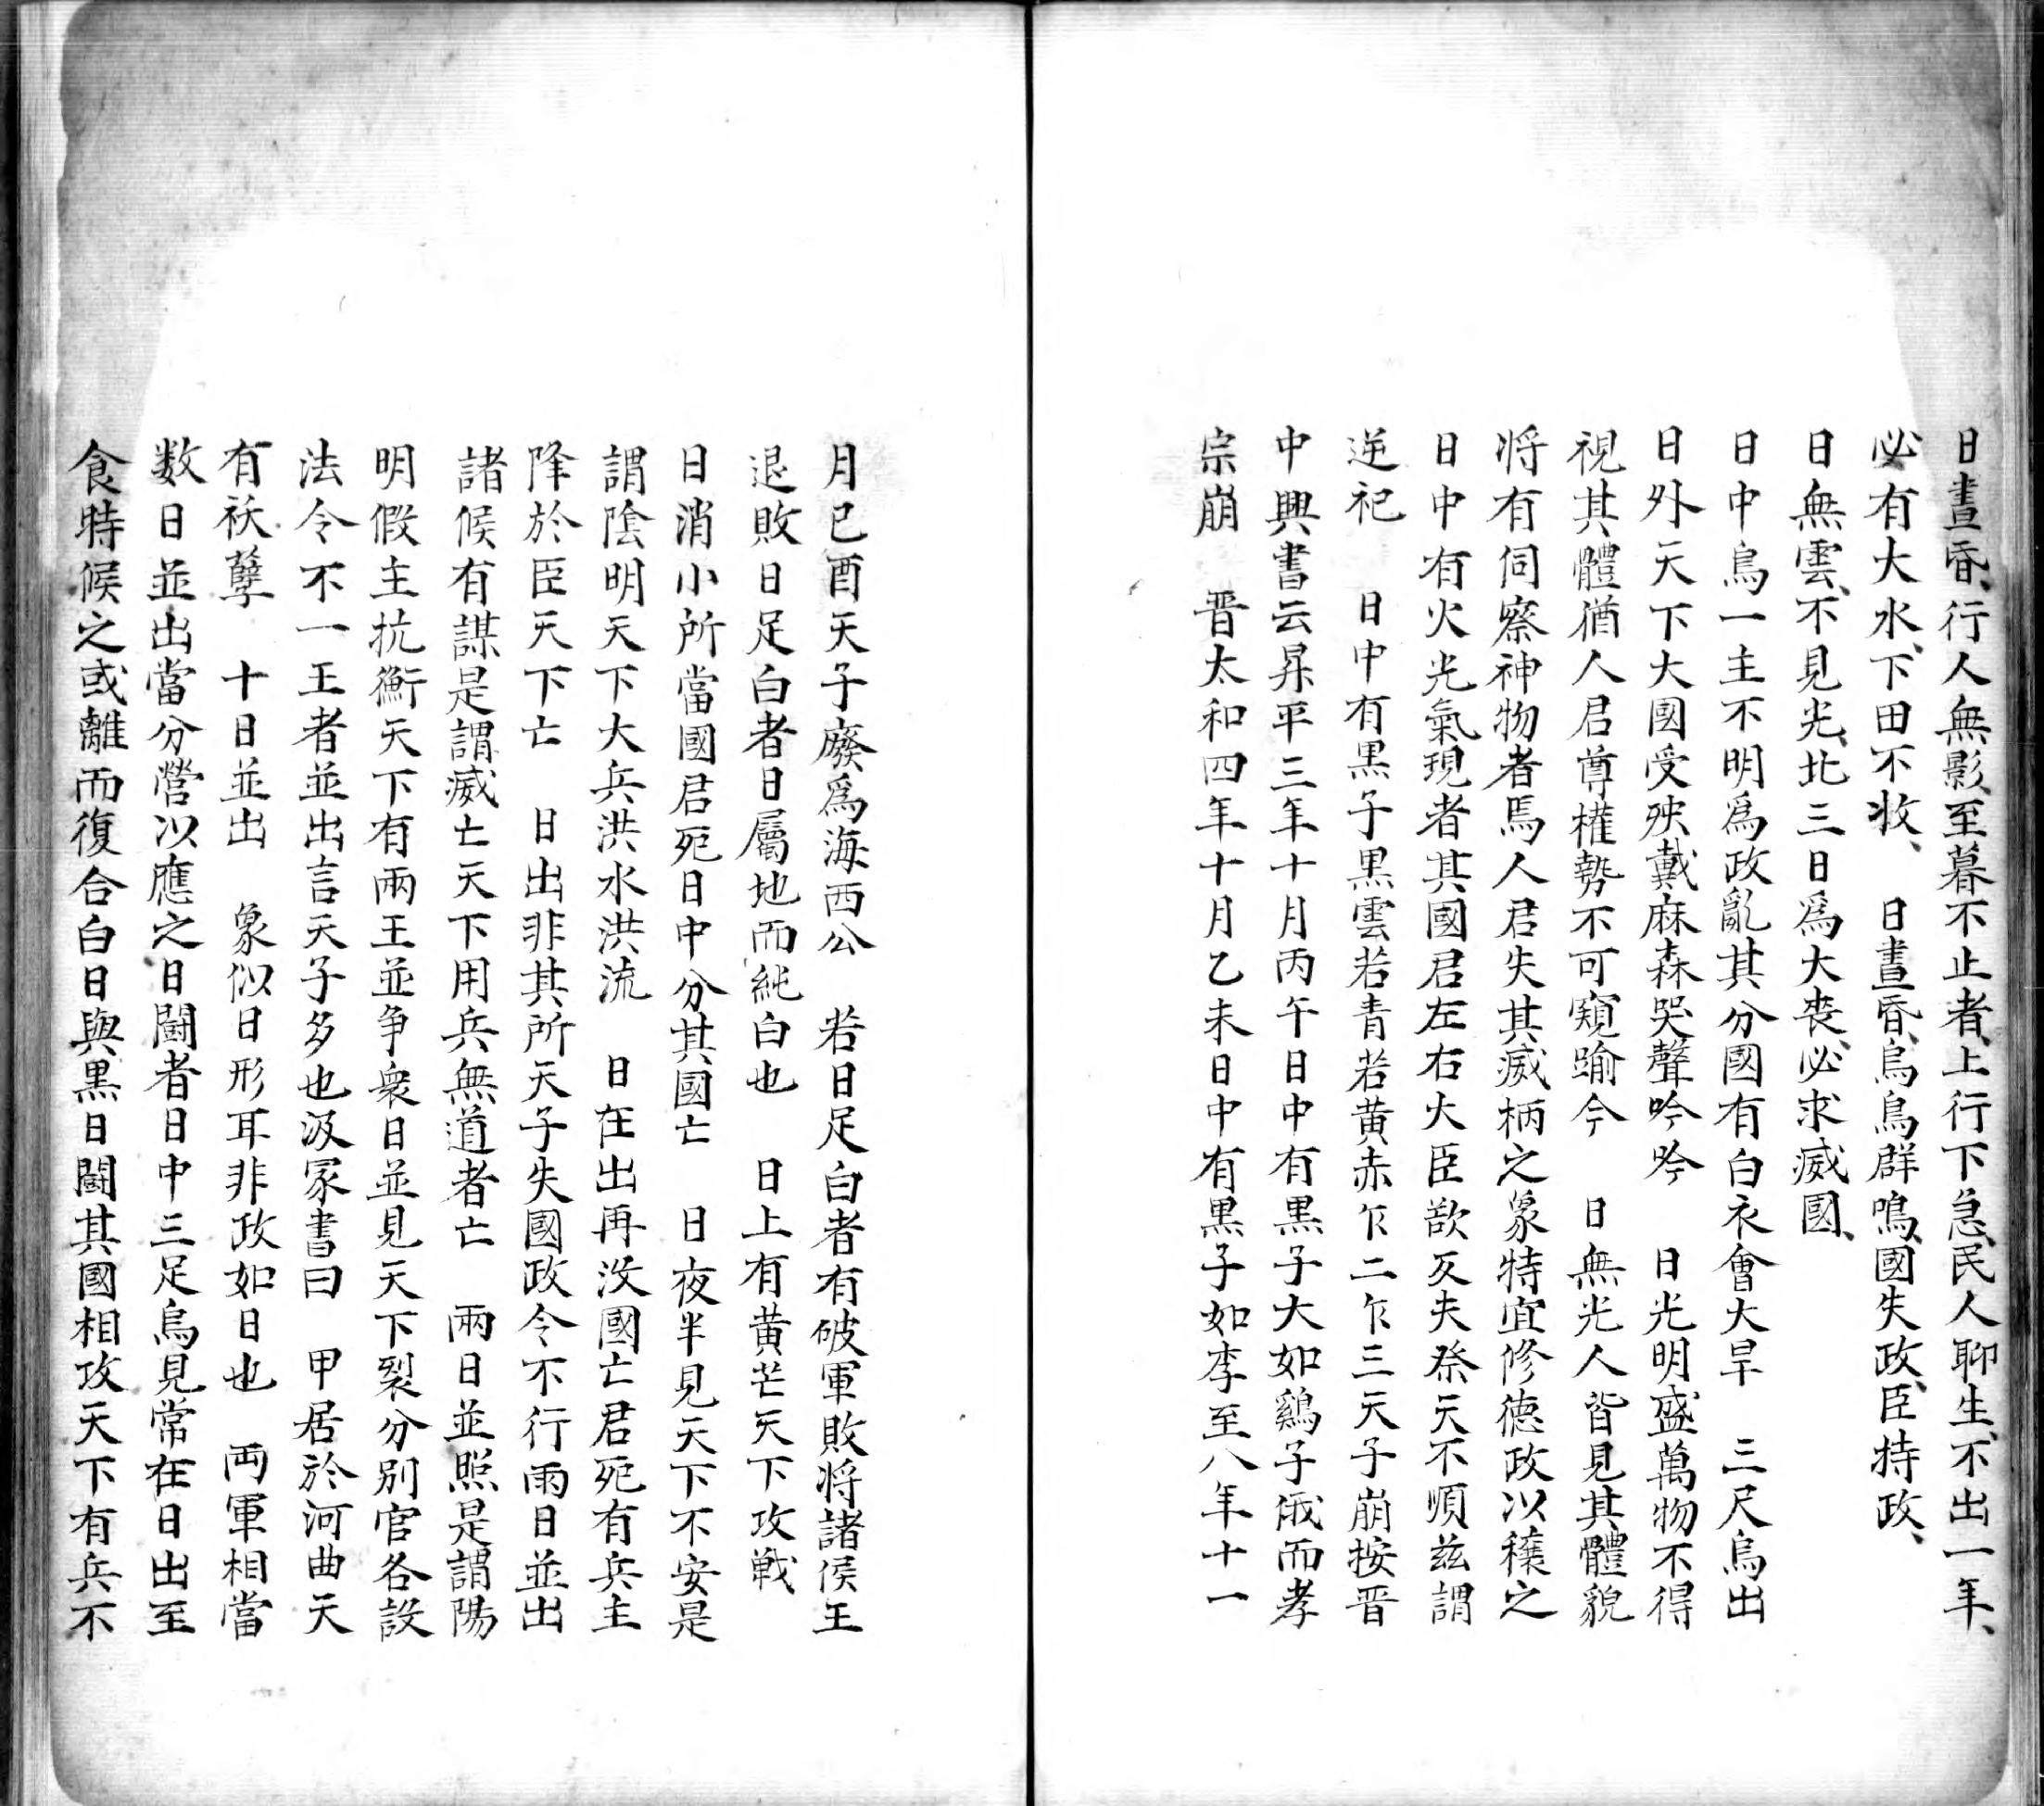 日晝昏、行人無影、至暮不止者、上行下急、民人聊生、不出一年、
必有大水、下田不收、　日晝昏、烏鳥群鳴、國失政、臣持政、
日無雲、不見光、比三日爲大喪、必求滅國、
日中烏一主不明爲政亂其分國有白衣會大旱　三尺烏出
日外天下大國受殃戴麻森哭聲吟吟　日光明盛萬物不得
視其體猶人君尊權勢不可窺踰今　日無光人皆見其體貌
将有伺察神物者焉人君失其威柄之象特宜修德政以穰之
日中有火光氣現者其國君左右大臣欲反夫祭天不順茲謂
逆祀　日中有黒子黒雲若青若黄赤乍二乍三天子崩按晋
中興書云昇平三年十月丙午日中有黒子大如鷄子俄而孝
宗崩　晋太和四年十月乙未日中有黒子如李至八年十一
月已酉天子廢爲海西公　若日足白者有破軍敗将諸侯王
退敗日足白者日屬地而純白也　日上有黄芒天下攻戦
日消小所當國君死日中分其國亡　日夜半見天下不安是
謂陰明天下大兵洪水洪流　日在出再没國亡君死有兵主
降於臣天下亡　日出非其所天子失國政令不行兩日並出
諸候有謀是謂滅亡天下用兵無道者亡　兩日並照是謂陽
明假主抗衡天下有兩王並争衆日並見天下裂分别官各設
法令不一王者並出言天子多也汲冢書曰　甲居於河曲天
有祅孽　十日並出　象似日形耳非政如日也　両軍相當
数日並出當分營以應之日鬪者日中三足烏見常在日出至
食時候之或離而復合白日與黒日鬪其國相攻天下有兵不